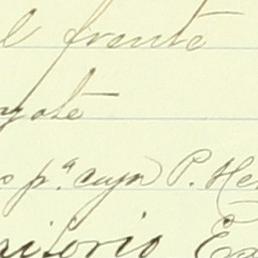 l frente
yote
s p.ª cuya P. He
itorio E